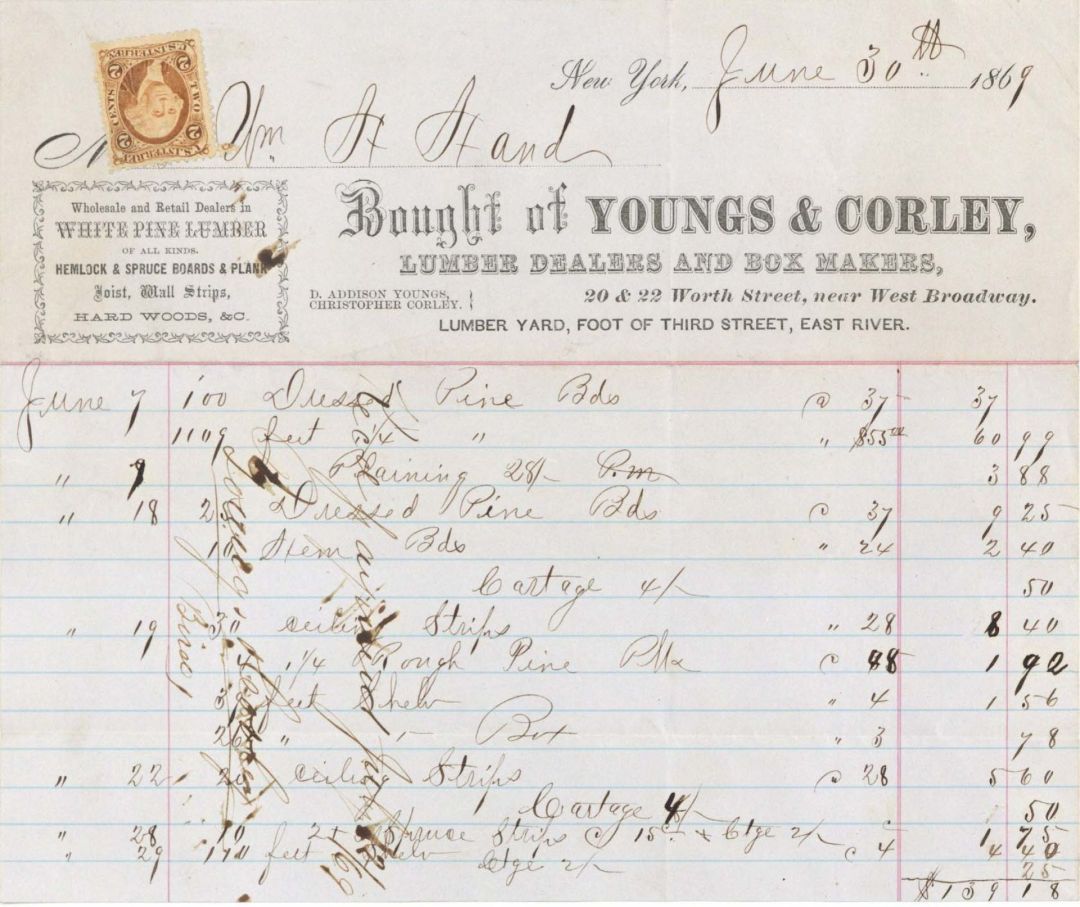 New York, June 30th 1869
Wm H Hand
U.S. INTER. REV.
2 CENTS TWO 2
Wholesale and Retail Dealers in
WHITE PINE LUMBER
OF ALL KINDS.
HEMLOCK & SPRUCE BOARDS & PLANK
Joist, Wall Strips,
HARD WOODS, &C.
Bought of YOUNGS & CORLEY,
LUMBER DEALERS AND BOX MAKERS,
D. ADDISON YOUNGS,
CHRISTOPHER CORLEY.
20 & 22 Worth Street, near West Broadway.
LUMBER YARD, FOOT OF THIRD STREET, EAST RIVER.
June 7 100 Dressed Pine Bds @ 37 37
1109 feet 1 1/4 " " $55.00 60 99
" 9 Plaining 28/- P.m 3 88
" 18 25 Dressed Pine Bds @ 37 9 25
10 Hem Bds " 24 2 40
Cartage 4/- 50
" 19 30 ceiling Strips " 28 8 40
1 1/4 Rough Pine Plk @ 48 1 92
feet Shelv " 4 1 56
26 " Box " 3 78
" 22 20 ceiling Strips @ 28 5 60
Cartage 4/- 50
" 28 10 Spruce Strips @ 15c + Ctge 2/- 1 75
" 29 110 feet Shelv @ 4 4 40
Ctge 2/- 25
$139 18
Recd payment July /69
Youngs & Corley